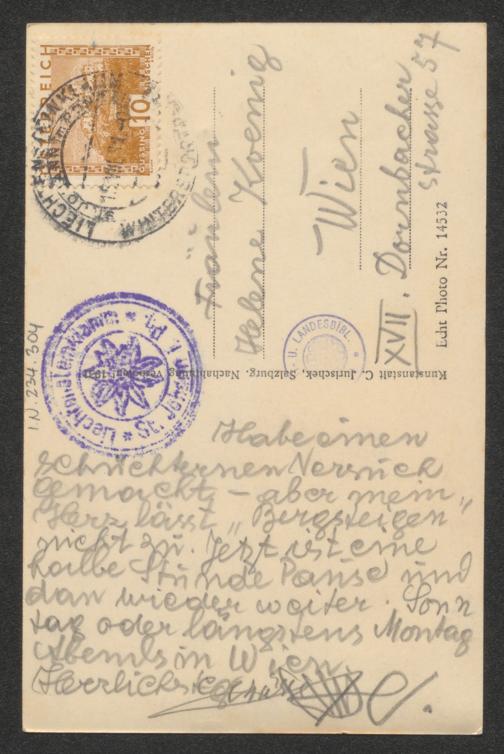 ÖSTERREICH
10
GÜSSING
GROSCHEN
Fräulein
Helene Koenig
Wien
XVII. Dornbacher
Strasse 57
Echt Photo Nr. 14532
Kunstanstalt C. Jurischek, Salzburg, Nachahmung
U. LANDESBIBL.
* Liechtensteinklamm * St. Johann i. Pg.
I.N. 234.304
Habe einen
schüchternen Versuch
gemacht – aber mein
Herz lässt „Bergsteigen"
nicht zu. Jetzt ist eine
halbe Stunde Pause und
dan wieder weiter. Sonn
tag oder längstens Montag
Abends in Wien.